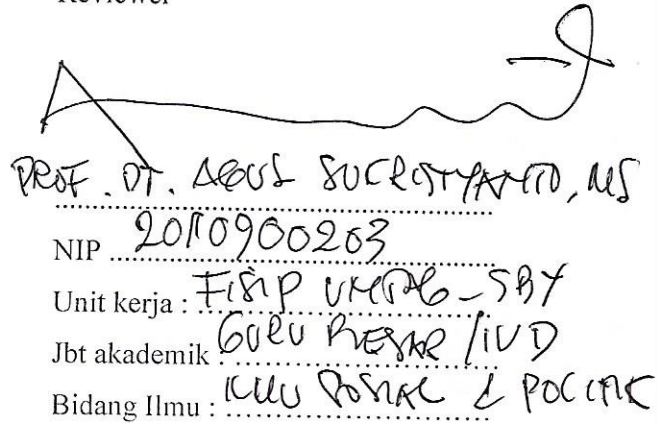 Reviewer
PROF. DT. AGUS SUCRISTYANTO, MS
NIP 20110900203
Unit kerja : FISIP UNTAG-SBY
Jbt akademik : GURU BESAR / IVD
Bidang Ilmu : ILMU SOSIAL & POLITIK